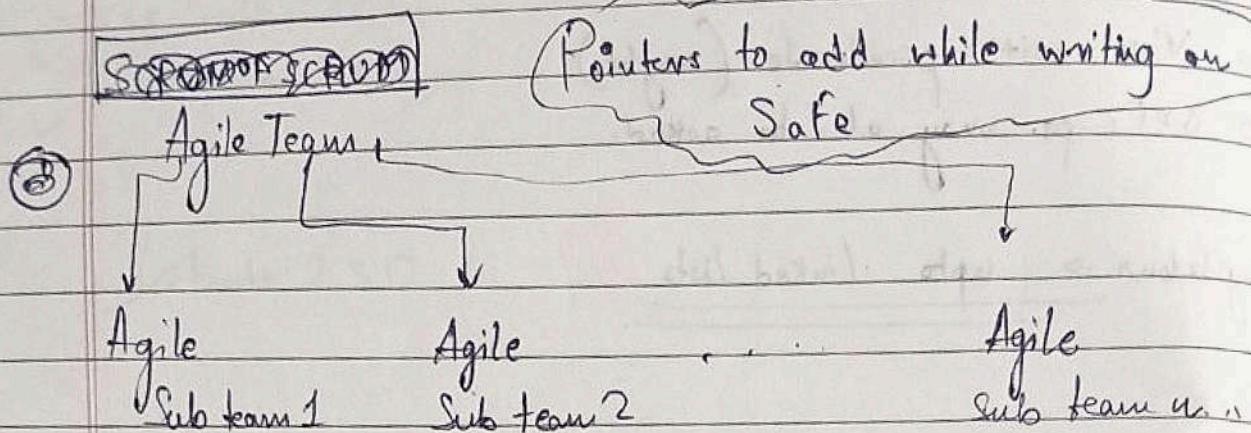 Pointers to add while writing on
Safe
Agile Team
Agile Agile . . . . Agile
Sub team 1 Sub team 2 Sub team n..